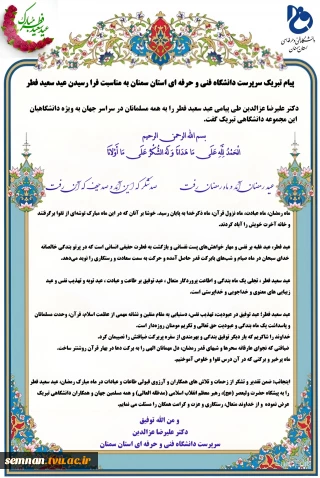 پیام تبریک سرپرست دانشگاه فنی و حرفه ای استان سمنان به مناسبت فرا رسیدن عید سعید فطر
دکتر علیرضا عزالدین طی پیامی عید سعید فطر را به همه مسلمانان در سراسر جهان به ویژه دانشگاهیان
این مجموعه دانشگاهی تبریک گفت.
بسم الله الرحمن الرحیم
الْحَمْدُ لِلَّهِ عَلَى مَا هَدَانَا وَ لَهُ الشُّكْرُ عَلَى مَا أَوْلَانَا
عید رمضان آمد و ماه رمضان رفت صد شکر که این آمد و صد حیف که آن رفت
ماه رمضان، ماه عبادت، ماه نزول قرآن، ماه ذکر خدا به پایان رسید. خوشا بر آنان که در این ماه مبارک توشه‌ای از تقوا برگرفتند
و خانه آخرت خویش را آباد کردند.
عید فطر، عید غلبه بر نفس و مهار خواهش‌های پست نفسانی و بازگشت به فطرت حقیقی انسانی است که در پرتو بندگی خالصانه
خدای سبحان در ماه صیام و شب‌های بابرکت قدر حاصل آمده و حرکت به سمت سعادت و رستگاری را نوید می‌دهد.
عید سعید فطر ، تجلی یک ماه بندگی و اطاعت پروردگار متعال ، عید توفیق بر طاعت و عبادت ، عید توبه و تهذیب نفس و عید
زیبایی های معنوی و خداجویی و خداپرستی است.
عید سعید فطر؛ عید توفیق در عبودیت، تهذیب نفس، دستیابی به مقام متقین و نشانه مهمی از عظمت اسلام، قرآن، وحدت مسلمانان
و پاسداشت یک ماه بندگی و عبودیت حق تعالی و تکریم مومنان روزه‌دار است.
خداوند را شاکریم که بار دیگر توفیق بندگی و بهره‌مندی از سفره پربرکت ضیافتش را نصیبمان کرد.
ضیافتی که نجوای عارفانه سحرها و شبهای قدر رمضان، دل مومنان الهی را به برکت دعا در بهار قرآن روشنتر ساخت.
ماه پرخیر و برکتی که در آن درس تقوا و خلوص آموختیم.
اینجانب؛ ضمن تقدیر و تشکر از زحمات و تلاش های همکاران و آرزوی قبولی طاعات و عبادات در ماه مبارک رمضان، عید سعید فطر
را به پیشگاه حضرت ولیعصر (عج)، رهبر معظم انقلاب اسلامی (مدظله العالی) و همه مسلمین جهان و همکاران دانشگاهی تبریک
عرض نموده و از خداوند متعال، رستگاری و عزت و کرامت همگان را مسئلت می نمایم.
و من الله توفیق
دکتر علیرضا عزالدین
سرپرست دانشگاه فنی و حرفه ای استان سمنان
semnan.tvu.ac.ir